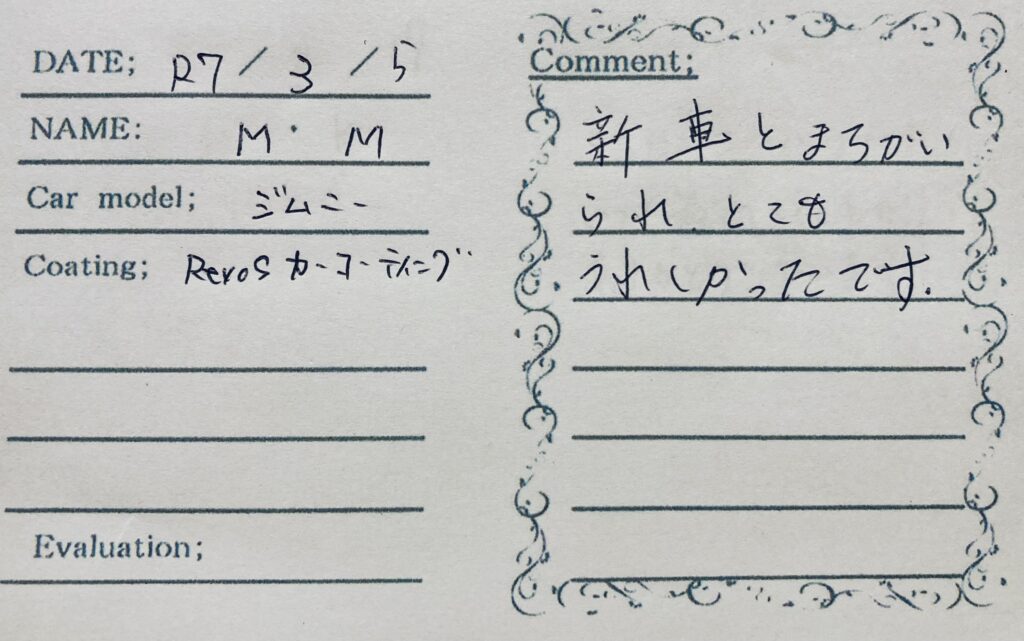 DATE; R7/3/5
NAME: M・M
Car model; ジムニー
Coating; RevoS カーコーティング
Evaluation;
Comment;
新車とまちがい
られ、とても
うれしかったです.